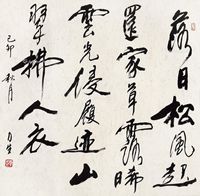 落日松風起
還家草露晞
雲光侵履迹山
翠拂人衣
己卯秋月